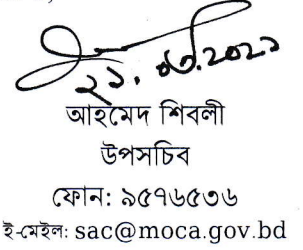 ২১.০৩.২০২১
আহমেদ শিবলী
উপসচিব
ফোন: ৯৫৭৬৫৩৬
ই-মেইল: sac@moca.gov.bd